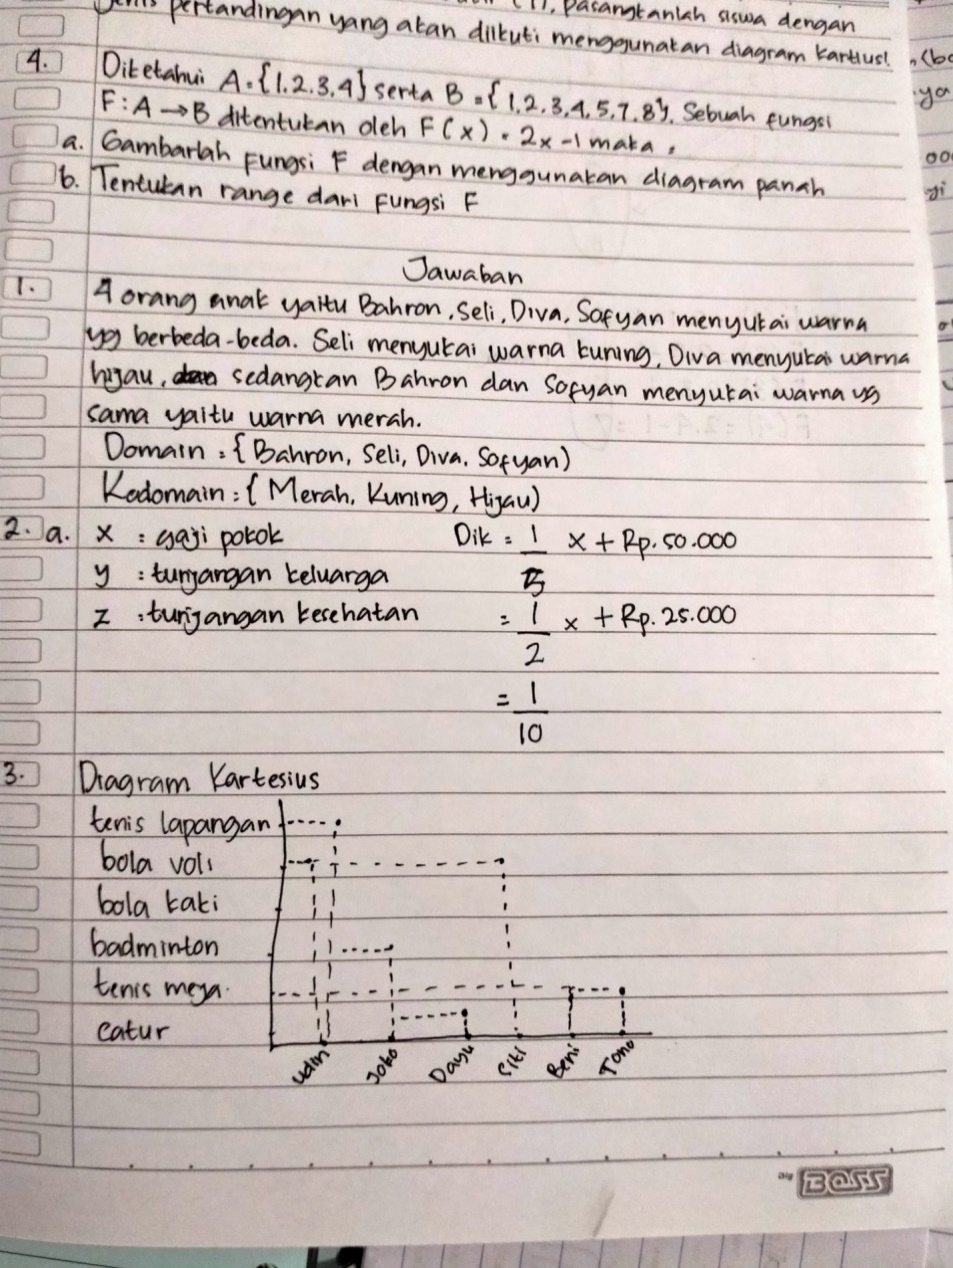 pertandingan yang akan diikuti menggunakan diagram Kartius!
(1), pasangkanlah siswa dengan
4. Diketahui A = {1.2.3.4} serta B = {1,2,3,4,5,7,8}. Sebuah fungsi
F : A → B ditentukan oleh F(x) = 2x - 1 maka,
a. Gambarlah fungsi F dengan menggunakan diagram panah
b. Tentukan range dari fungsi F
Jawaban
1. 4 orang anak yaitu Bahron, Seli, Diva, Sofyan menyukai warna
yg berbeda-beda. Seli menyukai warna kuning, Diva menyukai warna
hijau, dan sedangkan Bahron dan Sofyan menyukai warna yg
sama yaitu warna merah.
Domain = {Bahron, Seli, Diva, Sofyan)
Kodomain = { Merah, Kuning, Hijau)
2. a. x : gaji pokok Dik = 1/5 x + Rp. 50.000
y : tunjangan keluarga
z : tunjangan kesehatan = 1/2 x + Rp. 25.000
= 1/10
3. Diagram Kartesius
tenis lapangan
bola voli
bola kaki
badminton
tenis meja
catur
Udin Joko Dayu Siti Beni Tono
BOSS